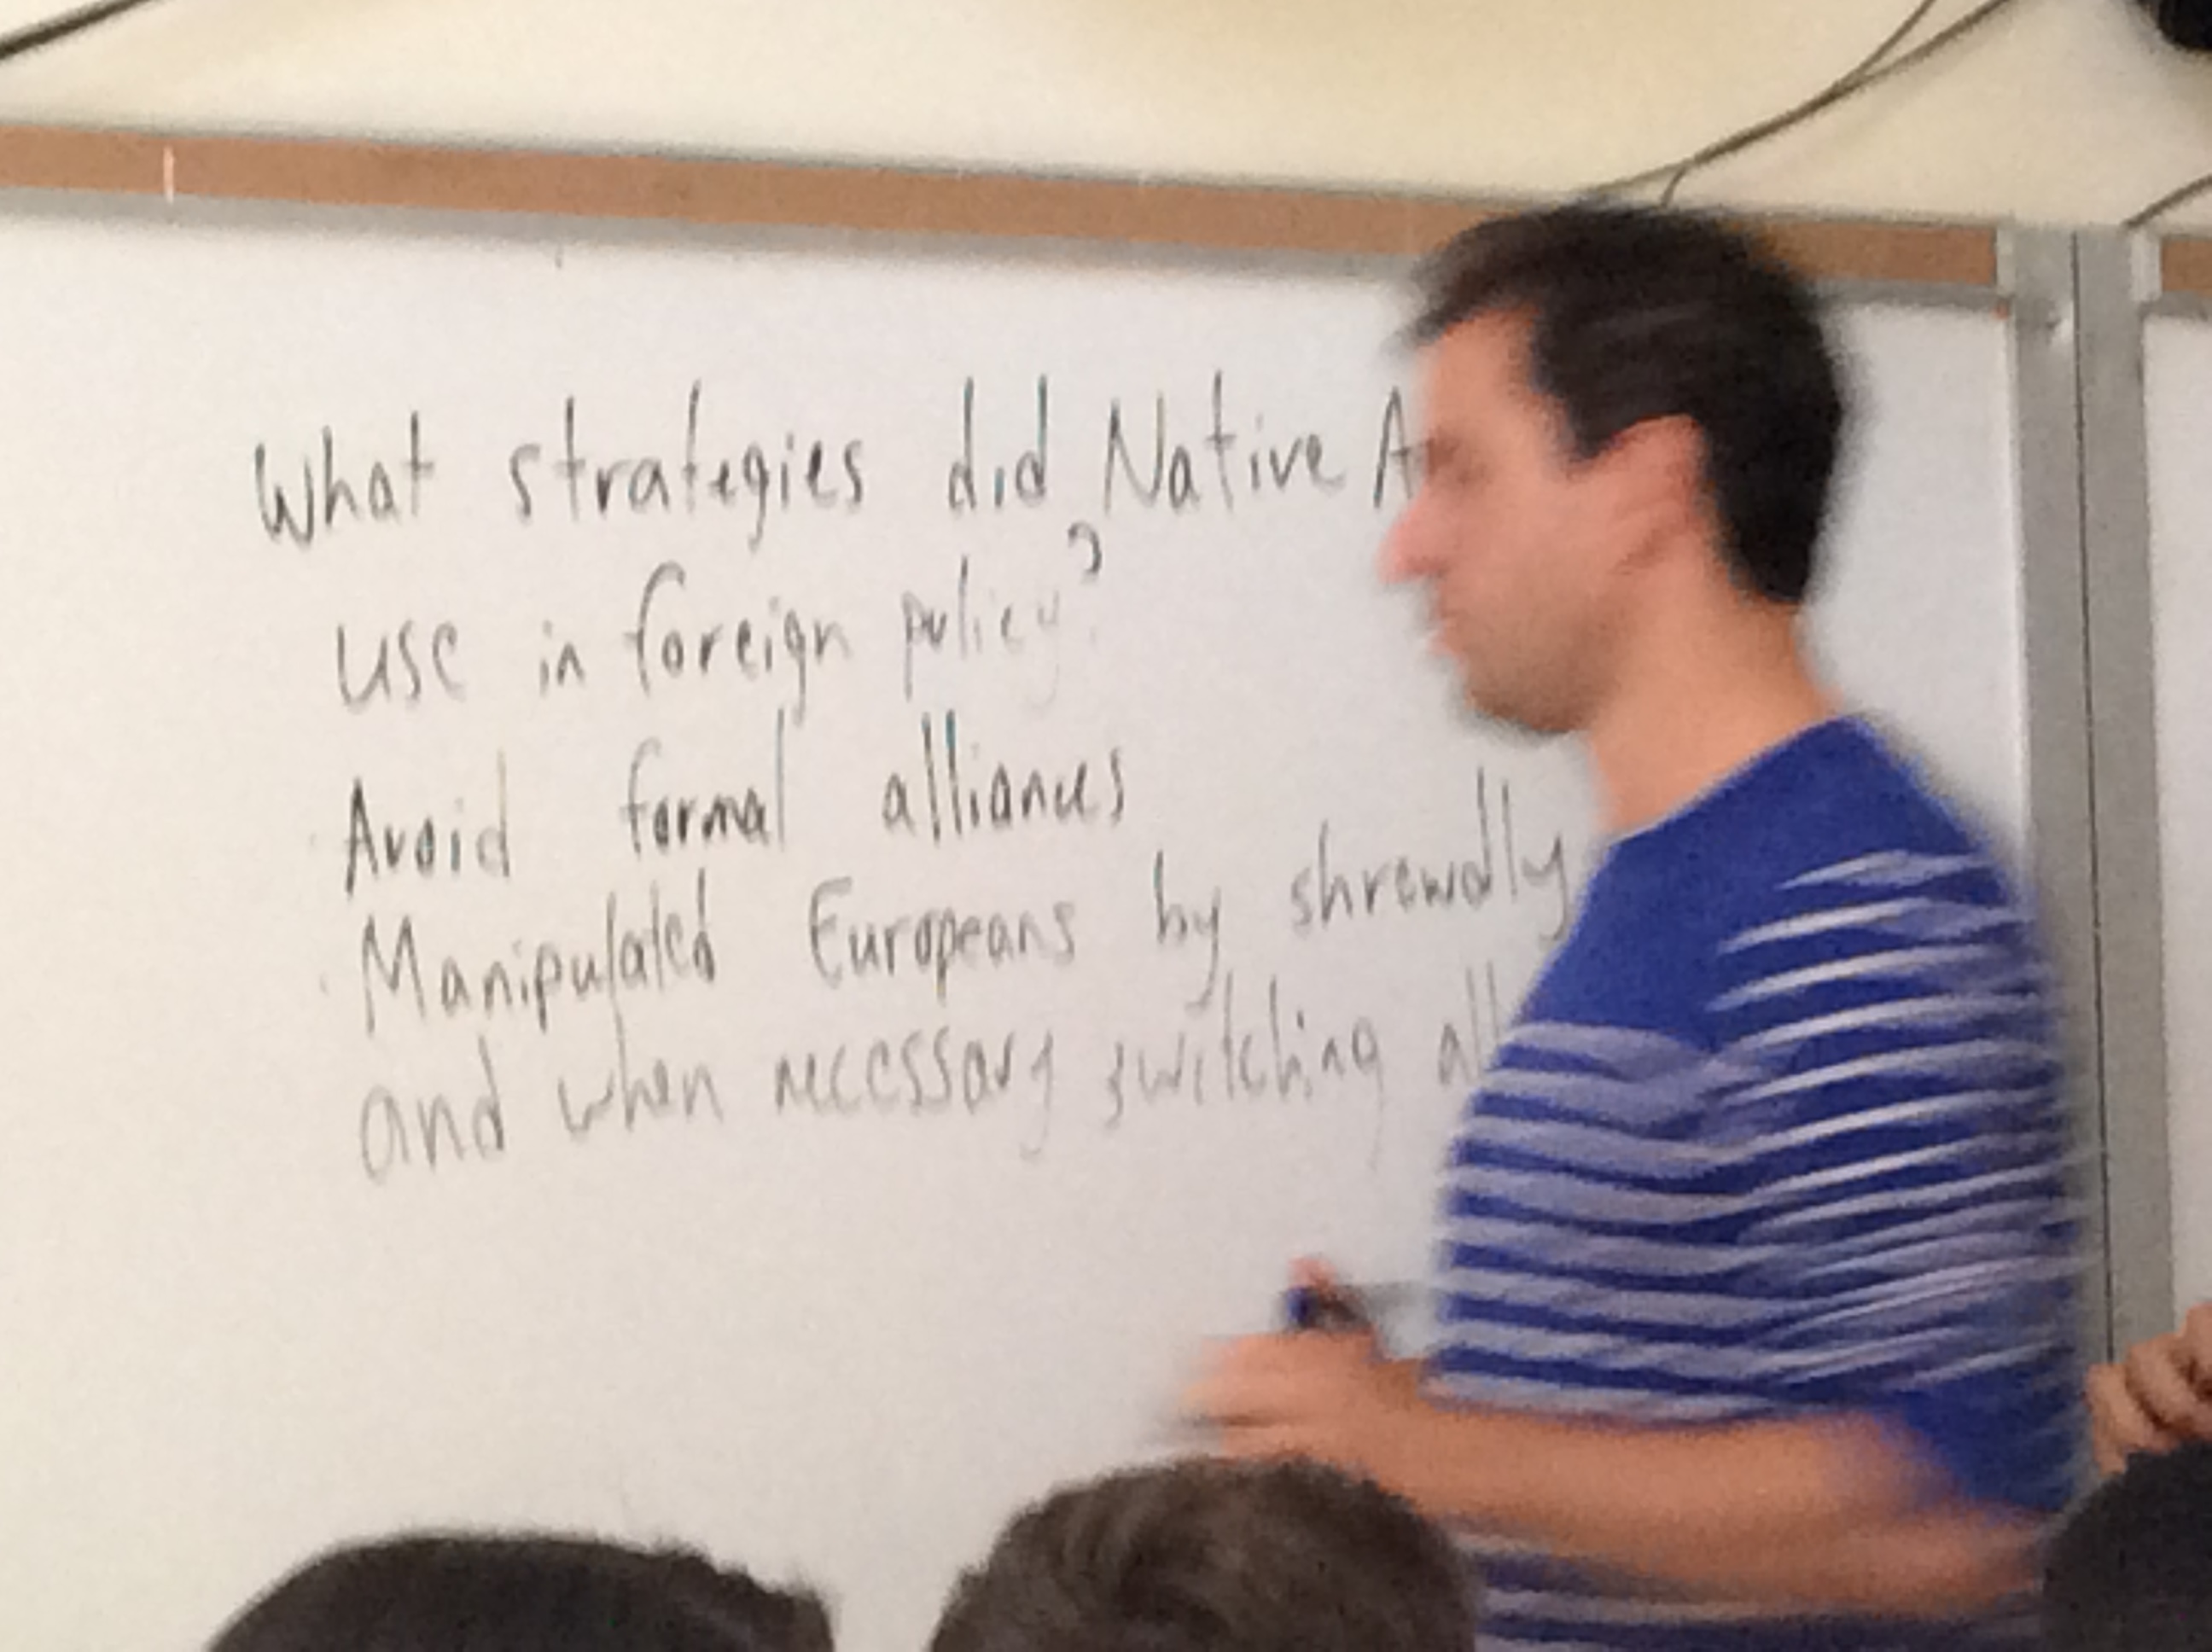 What strategies did Native A
use in foreign policy?
· Avoid formal alliances
· Manipulated Europeans by shrewdly
and when necessary switching all